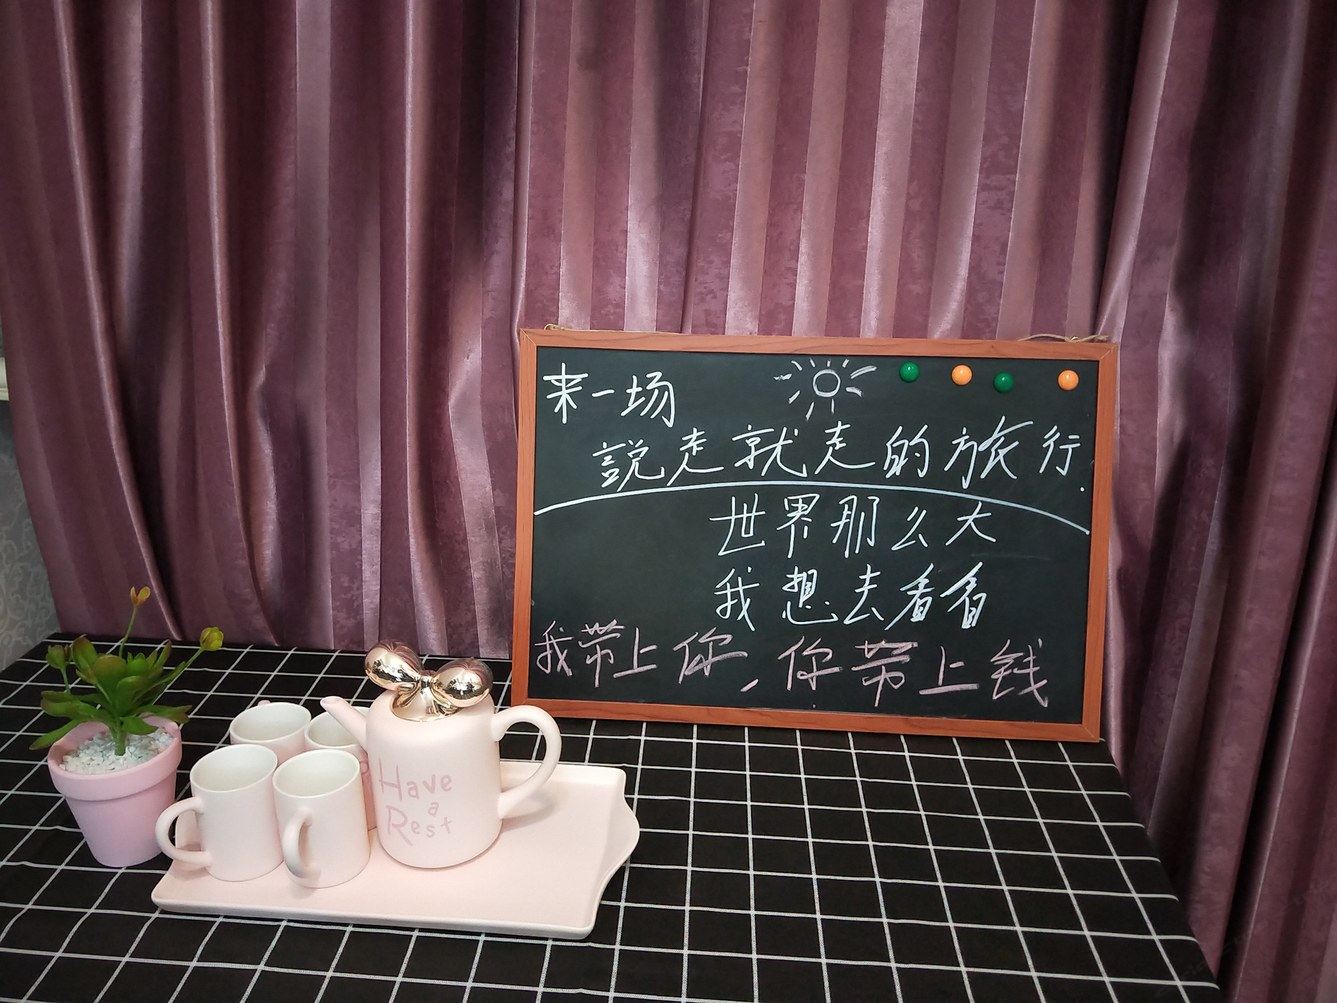 来一场
説走就走的旅行.
世界那么大
我想去看看
我带上你，你带上钱
Have
a
Rest